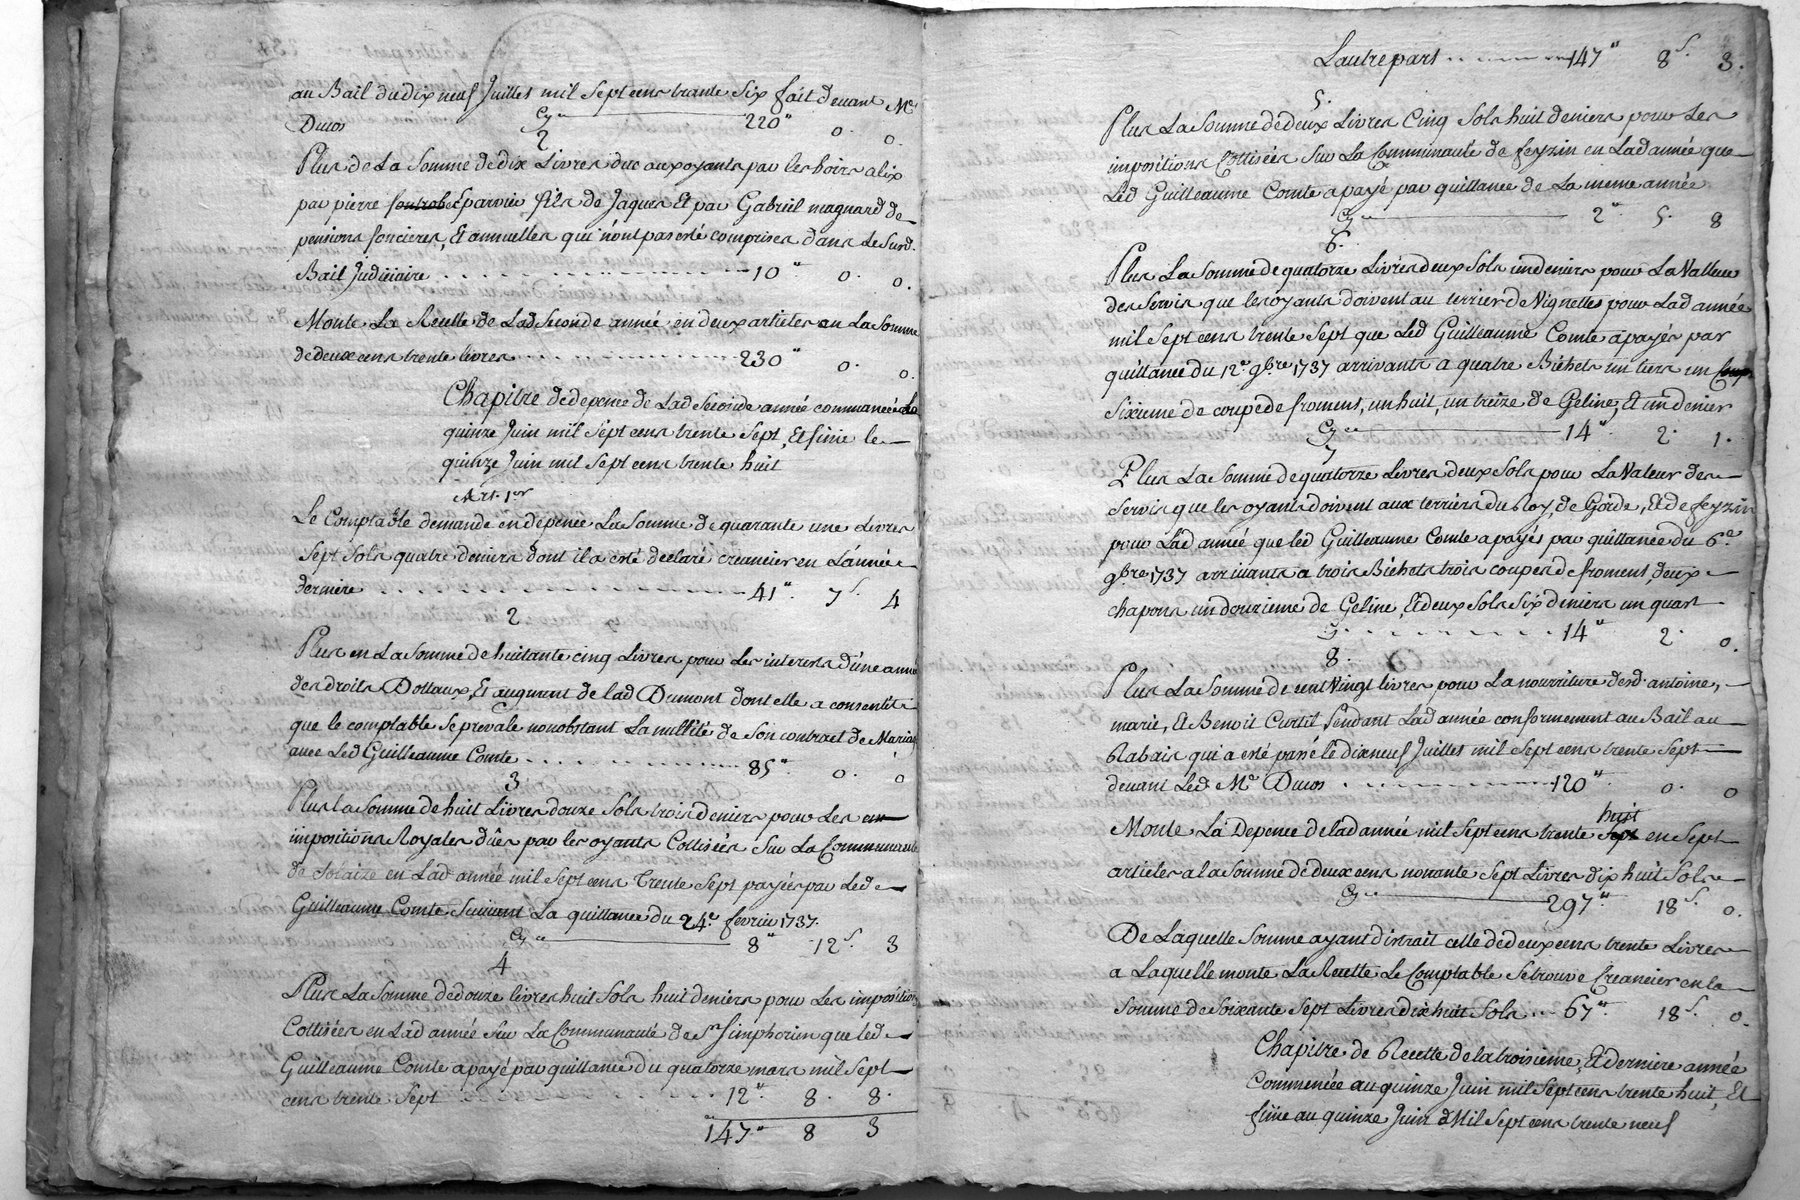 au Bail dudix neuf Juillet mil Sept cens trante Six fait devant Me
Ducos Cy 220" 0. 0.
2
Plus de La Somme dedix Livres due aux oyants par les hoirs alix
par pierre parvin fils de Jaques Et par Gabriel magnard de
pensions foncieres, Et annuelles qui n'ont pas esté comprises dans Le Surd.
Bail Judiciaire 10" 0. 0.
Monte La Recette de Lad Seconde année en deux articles au La Somme
dedeux cens trente livres 230" 0. 0.
Chapitre dedepence de Lad Seconde année commancée
quinze Juin mil Sept cens trente Sept, Et finie le
quinze Juin mil Sept cens trente huit
Art. 1er
Le Comptable demande en depence La Somme de quarante une Livres
Sept Sols quatre deniers dont il a esté declaré creancier en L'année
derniere 41" 7s. 4
2
Plus en La Somme de huitante cinq Livres pour Les interests d'une année
des droits Dottaux, Et augment de lad Dumont dont elle a consenti
que le comptable Se prevale nonobstant La nullité de Son contract de Mariage
avec Led Guilleaume Comte 85" 0. 0
3
Plus la Somme de huit Livres douze Sols trois deniers pour Les
impositions Royales dûes par les oyants Cottisées Sur La Communauté
de Solaize en Lad année mil Sept cens Trente Sept payées par Led
Guilleaume Comte Suivant La quittance du 24e fevrier 1737.
Cy 8" 12s. 3
4
Plus La Somme dedouze livres huit Sols huit deniers pour Les impositions
Cottisées en Lad année Sur La Communauté de St Simphorien que led
Guilleaume Comte a payé par quittance du quatorze mars mil Sept
cens trente Sept 12" 8. 8.
147" 8 3
Lautrepart 147" 8s. 3.
5.
Plus La Somme dedeux Livres Cinq Sols huit deniers pour Les
impositions Cottisées Sur La Communauté de feyzin en Lad année que
Led Guilleaume Comte a payé par quittance de La meme année
Cy 2" 5. 8
6.
Plus La Somme de quatorze Livres deux Sols un deniers pour La Valleur
des Servis que les oyants doivent au terrier de Vignettes pour Lad année
mil Sept cens trente Sept que Led Guilleaume Comte a payés par
quittance du 12e 9bre 1737 arrivants a quatre Bichets un tiers un
Sixieme de coupe de froment, un huit, un treize de Geline, Et un denier
Cy 14" 2. 1.
7
Plus La Somme de quatorze Livres deux Sols pour La Valeur des
Servis que les oyants doivent aux terriers du Roy, de Gorde, Et de feyzin
pour Lad année que led Guilleaume Comte a payés par quittance du 6e
9bre 1737 arrivants a trois Bichets trois coupes de froment, deux
chapons un douzieme de Geline, Et deux Sols Six deniers un quart
Cy 14" 2. 0.
8.
Plus La Somme de cent Vingt livres pour La nourriture desd. antoine,
marie, Et Benoit Curtil Pendant Lad année conformement au Bail au
Rabais qui a esté passé le dixneuf Juillet mil Sept cens trente Sept
devant Led. Me Ducos 120" 0. 0
Monte La Depence de lad année mil Sept cens trente huit en Sept
articles a la Somme de deux cens nonante Sept Livres dix huit Sols
Cy 297" 18s. 0.
De Laquelle Somme ayant distrait celle dedeux cens trente Livres
a Laquelle monte La Recette Le Comptable Se trouve Creancier en la
Somme de Soixante Sept Livres dix huit Sols 67" 18s. 0.
Chapitre de Recette de la troisieme, Et derniere année
Commencée au quinze Juin mil Sept cens trente huit, Et
finie au quinze Juin Mil Sept cens trente neuf